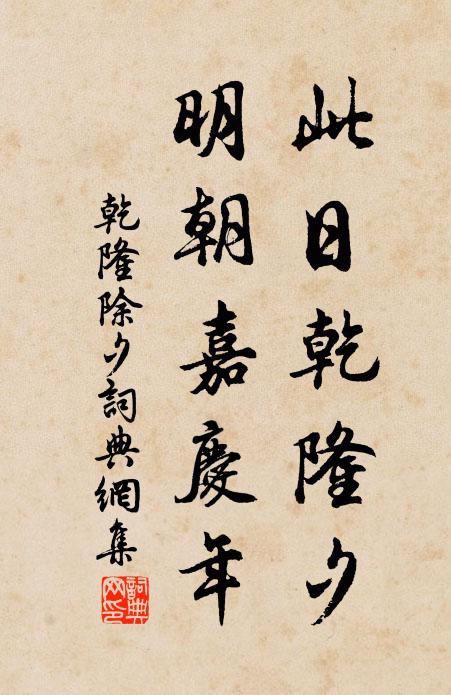 此日乾隆夕
明朝嘉慶年
乾隆除夕詞典網集
詞典
網印